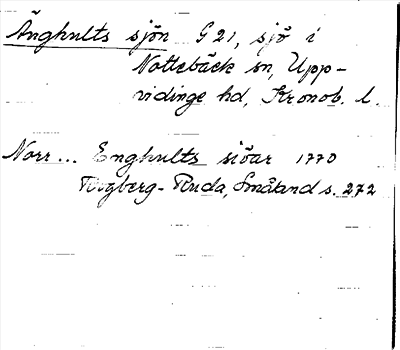 Änghults sjön G 21, sjö i
Nottebäck sn, Upp-
vidinge hd, Kronob. l.
Norr... Enghults siöar 1770
Rogberg-Ruda, Småland s. 272